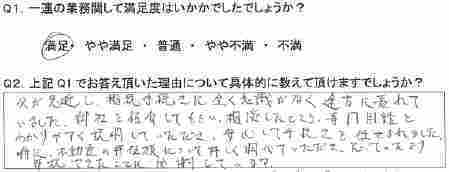 Q1. 一連の業務関して満足度はいかかでしたでしょうか？
満足・ やや満足 ・ 普通 ・ やや不満 ・ 不満
Q2. 上記Q1でお答え頂いた理由について具体的に教えて頂けますでしょうか？
父が他界し、相続手続きに全く知識がなく、途方に暮れて
いました。 相談したところ、専門用語を
わかりやすく説明していただき、安心して手続きを任せられました。
特に、不動産の 詳しく調べていただき
感謝しています。